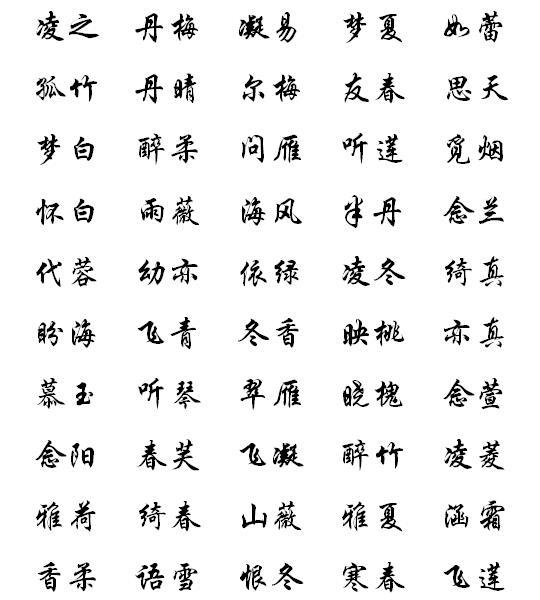 凌之 丹梅 凝易 梦夏 如蕾
孤竹 丹晴 尔梅 友春 思天
梦白 醉柔 问雁 听莲 觅烟
怀白 雨薇 海风 半丹 念兰
代蓉 幼亦 依绿 凌冬 绮真
盼海 飞青 冬香 映桃 亦真
慕玉 听琴 翠雁 晓槐 念萱
念阳 春芙 飞凝 醉竹 凌菱
雅荷 绮春 山薇 雅夏 涵霜
香柔 语雪 恨冬 寒春 飞莲